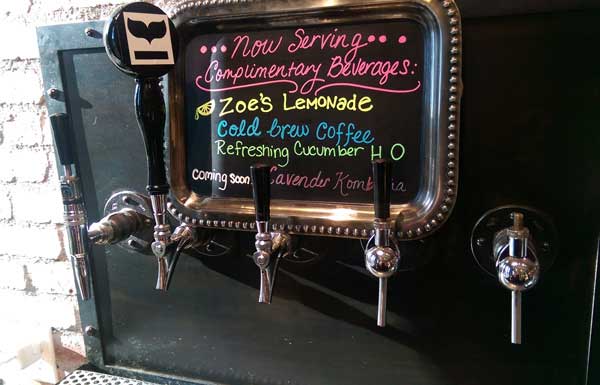 Now Serving
Complimentary Beverages:
Zoe's Lemonade
Cold brew Coffee
Refreshing Cucumber H O
Coming soon: Lavender